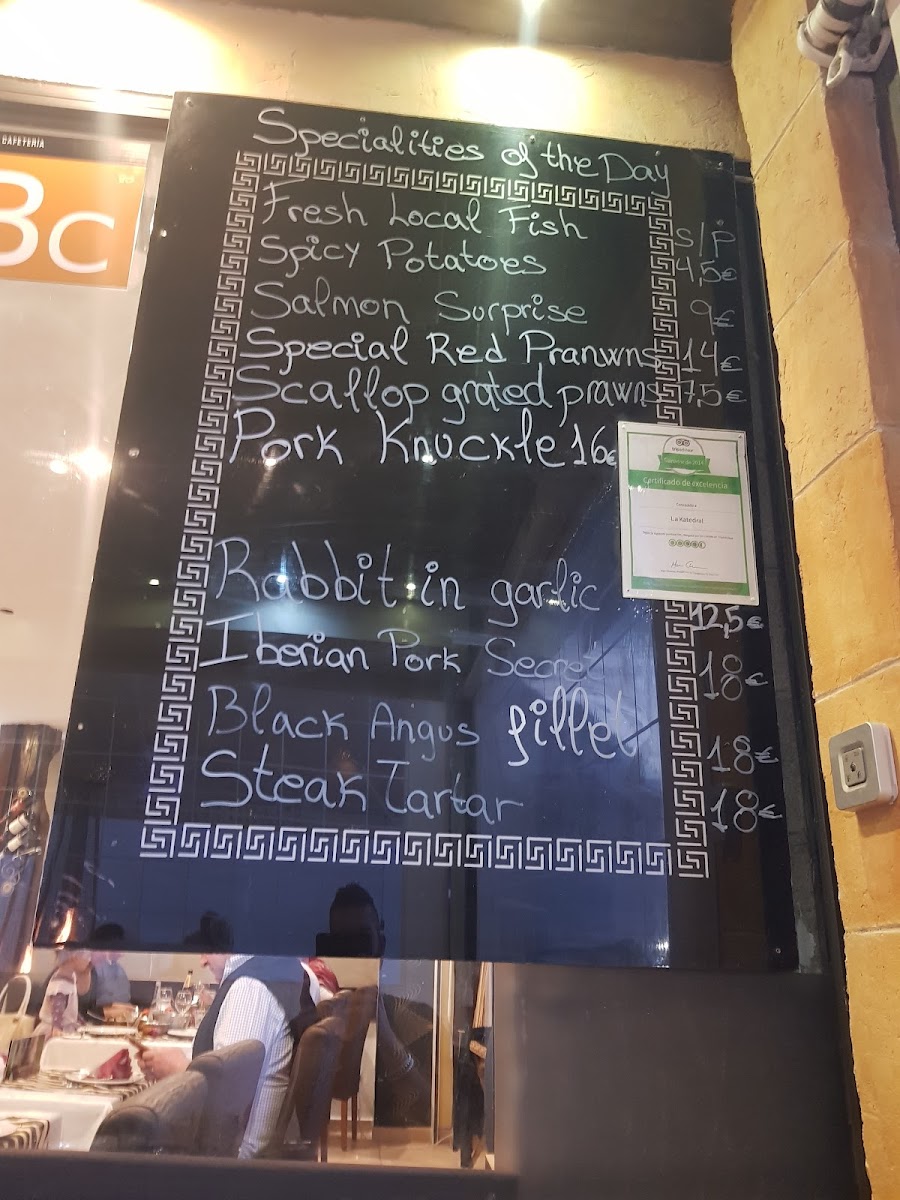 CAFETERÍA
Bc
Specialities of the Day
Fresh Local Fish s/p
Spicy Potatoes 4,5€
Salmon Surprise 9€
Special Red Pranwns 14€
Scallop grated prawns 7,5€
Pork Knuckle 16€
Certificado de excelencia
La Katedral
Rabbit in garlic 12,5€
Iberian Pork Secret 18€
Black Angus fillet 18€
Steak Tartar 18€